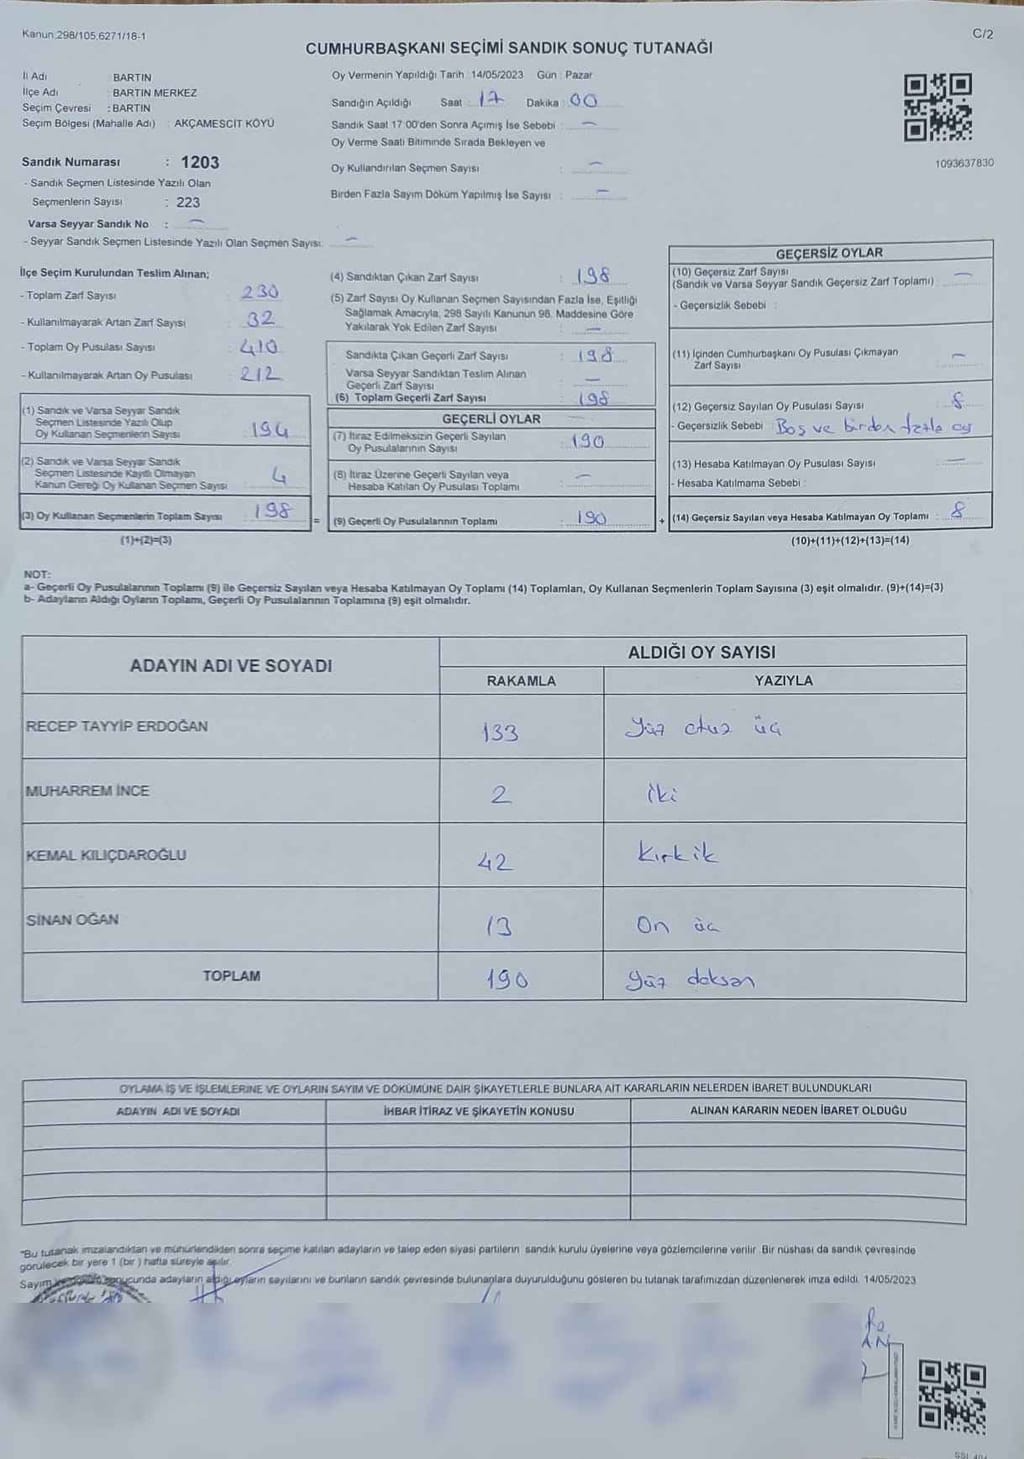 Kanun:298/105,6271/18-1
C/2
CUMHURBAŞKANI SEÇİMİ SANDIK SONUÇ TUTANAĞI
İl Adı : BARTIN
İlçe Adı : BARTIN MERKEZ
Seçim Çevresi : BARTIN
Seçim Bölgesi (Mahalle Adı) : AKÇAMESCİT KÖYÜ
Sandık Numarası : 1203
- Sandık Seçmen Listesinde Yazılı Olan
Seçmenlerin Sayısı : 223
Varsa Seyyar Sandık No : –
- Seyyar Sandık Seçmen Listesinde Yazılı Olan Seçmen Sayısı: –
Oy Vermenin Yapıldığı Tarih : 14/05/2023 Gün : Pazar
Sandığın Açıldığı Saat : 17 Dakika : 00
Sandık Saat 17:00'den Sonra Açımış İse Sebebi : –
Oy Verme Saati Bitiminde Sırada Bekleyen ve
Oy Kullandırılan Seçmen Sayısı : –
Birden Fazla Sayım Döküm Yapılmış İse Sayısı : –
1093637830
İlçe Seçim Kurulundan Teslim Alınan;
- Toplam Zarf Sayısı : 230
- Kullanılmayarak Artan Zarf Sayısı : 32
- Toplam Oy Pusulası Sayısı : 410
- Kullanılmayarak Artan Oy Pusulası : 212
(1) Sandık ve Varsa Seyyar Sandık
Seçmen Listesinde Yazılı Olup
Oy Kullanan Seçmenlerin Sayısı : 194
(2) Sandık ve Varsa Seyyar Sandık
Seçmen Listesinde Kayıtlı Olmayan
Kanun Gereği Oy Kullanan Seçmen Sayısı : 4
(3) Oy Kullanan Seçmenlerin Toplam Sayısı : 198
(1)+(2)=(3)
(4) Sandıktan Çıkan Zarf Sayısı : 198
(5) Zarf Sayısı Oy Kullanan Seçmen Sayısından Fazla İse, Eşitliği
Sağlamak Amacıyla, 298 Sayılı Kanunun 98. Maddesine Göre
Yakılarak Yok Edilen Zarf Sayısı : –
Sandıkta Çıkan Geçerli Zarf Sayısı : 198
Varsa Seyyar Sandıktan Teslim Alınan
Geçerli Zarf Sayısı : –
(6) Toplam Geçerli Zarf Sayısı : 198
GEÇERLİ OYLAR
(7) İtiraz Edilmeksizin Geçerli Sayılan
Oy Pusulalarının Sayısı : 190
(8) İtiraz Üzerine Geçerli Sayılan veya
Hesaba Katılan Oy Pusulası Toplamı : –
= (9) Geçerli Oy Pusulalarının Toplamı : 190 +
GEÇERSİZ OYLAR
(10) Geçersiz Zarf Sayısı
(Sandık ve Varsa Seyyar Sandık Geçersiz Zarf Toplamı) : –
- Geçersizlik Sebebi :
(11) İçinden Cumhurbaşkanı Oy Pusulası Çıkmayan
Zarf Sayısı : –
(12) Geçersiz Sayılan Oy Pusulası Sayısı : 8
- Geçersizlik Sebebi : Boş ve birden fazla oy
(13) Hesaba Katılmayan Oy Pusulası Sayısı : –
- Hesaba Katılmama Sebebi :
(14) Geçersiz Sayılan veya Hesaba Katılmayan Oy Toplamı : 8
(10)+(11)+(12)+(13)=(14)
NOT:
a- Geçerli Oy Pusulalarının Toplamı (9) ile Geçersiz Sayılan veya Hesaba Katılmayan Oy Toplamı (14) Toplamları, Oy Kullanan Seçmenlerin Toplam Sayısına (3) eşit olmalıdır. (9)+(14)=(3)
b- Adayların Aldığı Oyların Toplamı, Geçerli Oy Pusulalarının Toplamına (9) eşit olmalıdır.
ADAYIN ADI VE SOYADI
ALDIĞI OY SAYISI
RAKAMLA YAZIYLA
RECEP TAYYİP ERDOĞAN 133 Yüz otuz üç
MUHARREM İNCE 2 İki
KEMAL KILIÇDAROĞLU 42 Kırkik
SİNAN OĞAN 13 On üç
TOPLAM 190 Yüz doksan
OYLAMA İŞ VE İŞLEMLERİNE VE OYLARIN SAYIM VE DÖKÜMÜNE DAİR ŞİKAYETLERLE BUNLARA AİT KARARLARIN NELERDEN İBARET BULUNDUKLARI
ADAYIN ADI VE SOYADI İHBAR İTİRAZ VE ŞİKAYETİN KONUSU ALINAN KARARIN NEDEN İBARET OLDUĞU
*Bu tutanak imzalandıktan ve mühürlendikten sonra seçime katılan adayların ve talep eden siyasi partilerin sandık kurulu üyelerine veya gözlemcilerine verilir. Bir nüshası da sandık çevresinde
görülecek bir yere 1 (bir ) hafta süreyle asılır.
Sayım sonucunda adayların aldığı oyların sayılarını ve bunların sandık çevresinde bulunanlara duyurulduğunu gösteren bu tutanak tarafımızdan düzenlenerek imza edildi. 14/05/2023